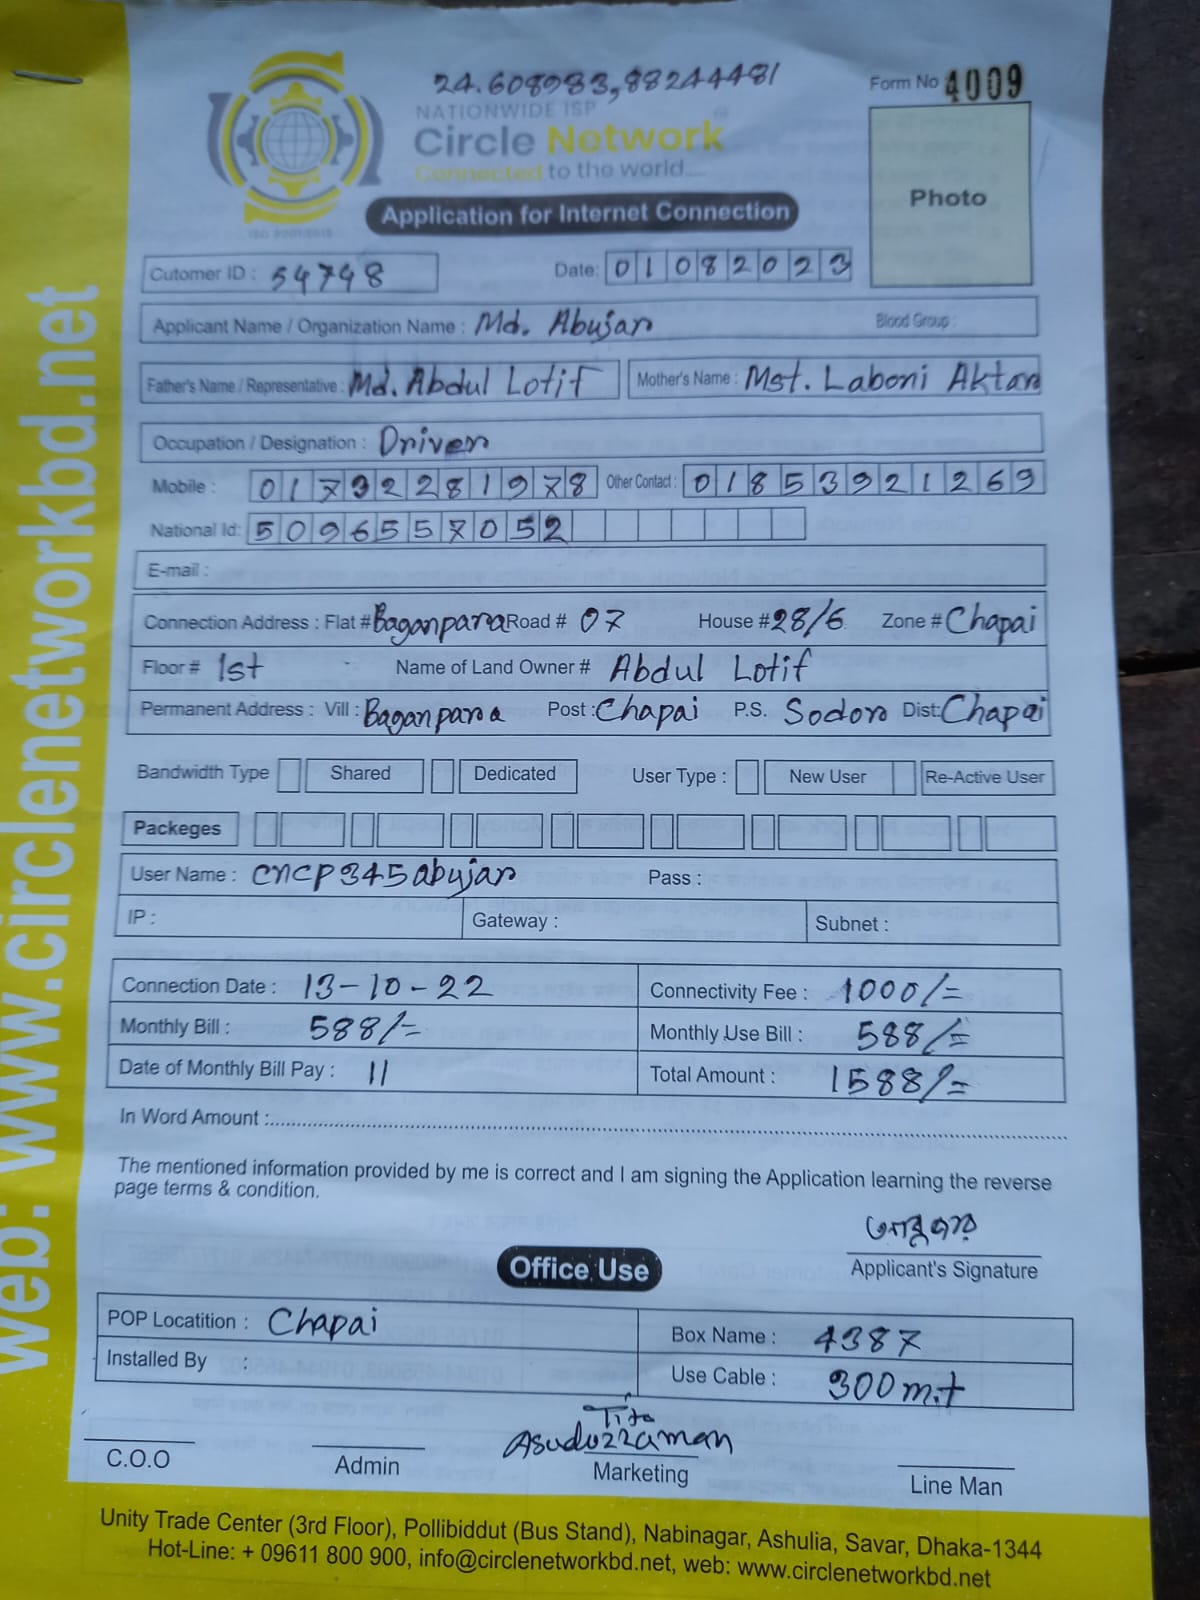 24.608983,88244481
Form No 4009
NATIONWIDE ISP
Circle Network
Connected to the world....
Photo
Application for Internet Connection
ISO 9001:2015
Cutomer ID : 54748
Date: 01082023
Applicant Name / Organization Name : Md. Abujar
Blood Group :
Father's Name / Representative : Md. Abdul Lotif
Mother's Name : Mst. Laboni Aktar
Occupation / Designation : Driver
Mobile : 01732281978
Other Contact : 01853921269
National Id: 5096557052
E-mail :
Connection Address : Flat # Baganpara Road # 07 House # 28/6 Zone # Chapai
Floor # 1st Name of Land Owner # Abdul Lotif
Permanent Address : Vill : Baganpara Post : Chapai P.S. Sodor Dist: Chapai
Bandwidth Type Shared Dedicated User Type : New User Re-Active User
Packeges
User Name : cncp345abujar Pass :
IP : Gateway : Subnet :
Connection Date : 13-10-22 Connectivity Fee : 1000/=
Monthly Bill : 588/= Monthly Use Bill : 588/=
Date of Monthly Bill Pay : 11 Total Amount : 1588/=
In Word Amount :
The mentioned information provided by me is correct and I am signing the Application learning the reverse
page terms & condition.
Applicant's Signature
Office Use
POP Locatition : Chapai Box Name : 4387
Installed By : Use Cable : 300 m.t
Asaduzzaman
C.O.O Admin Marketing Line Man
Unity Trade Center (3rd Floor), Pollibiddut (Bus Stand), Nabinagar, Ashulia, Savar, Dhaka-1344
Hot-Line: + 09611 800 900, info@circlenetworkbd.net, web: www.circlenetworkbd.net
web: www.circlenetworkbd.net